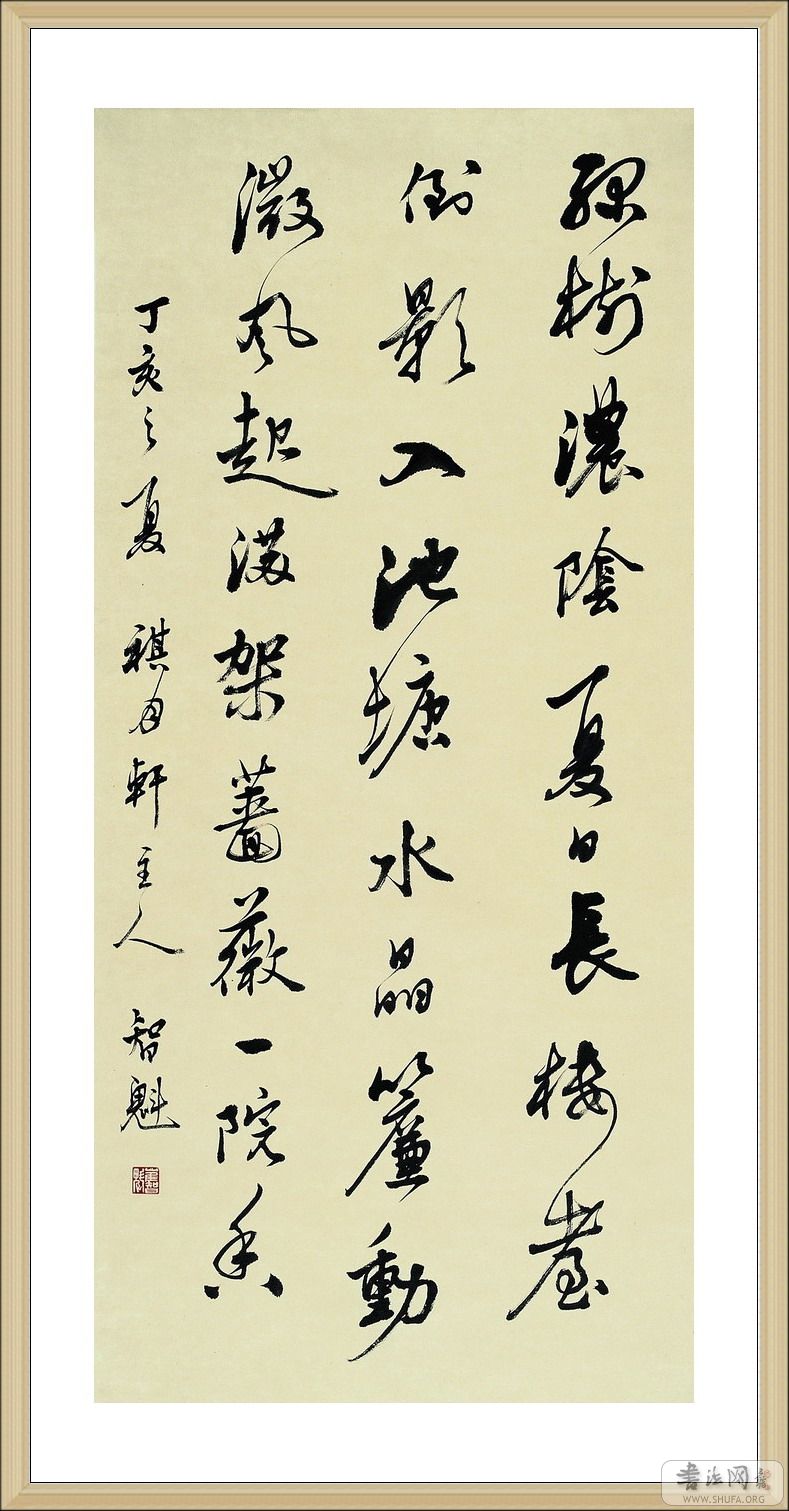 綠樹濃陰夏日長樓臺
倒影入池塘水晶簾動
微風起滿架薔薇一院香
丁亥之夏 祺月軒主人 智魁
书法网
WWW.SHUFA.ORG